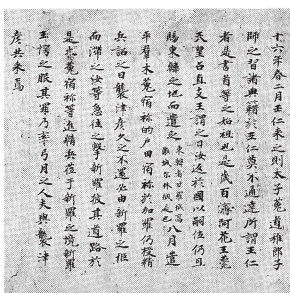 十六年春二月王仁来之則太子菟道稚郎子
師之習諸典籍於王仁莫不通達所謂王仁
者是書首等之始祖也是歳百濟阿花王薨
天皇召直支王謂之曰汝返於國以嗣位仍且
賜東韓之地而遣之東韓者甘羅城高難城爾林城是也八月遣
平群木菟宿祢的戸田宿祢於加羅仍授精
兵詔之曰襲津彦久之不還必由新羅之拒
而滯之汝等急往之擊新羅披其道路於
是木菟宿祢等進精兵莅于新羅之境新羅
王愕之服其罪乃率弓月之人夫與襲津
彦共来焉